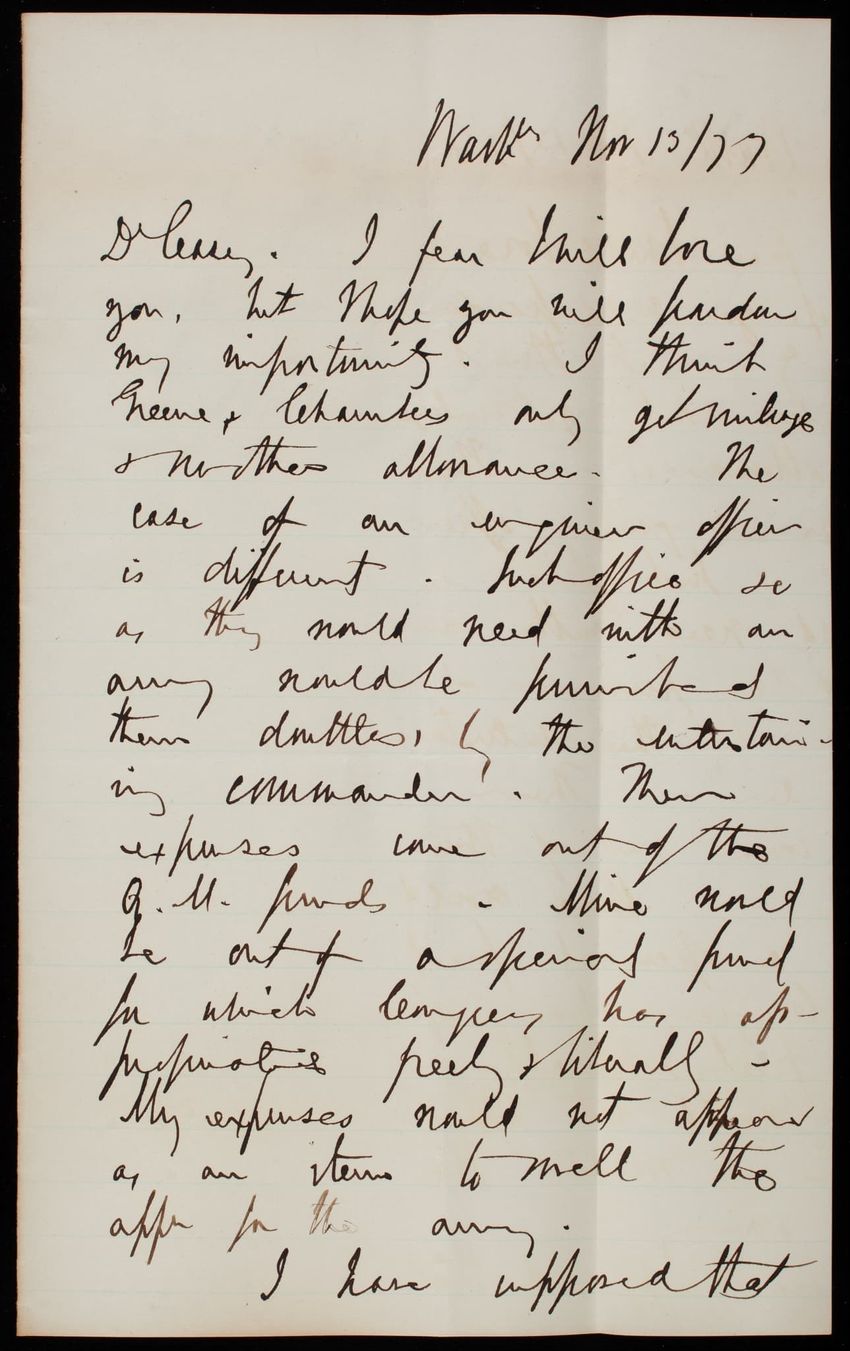 Washn Nov 13/77
Dr Casey. I fear I will bore
you, but I hope you will pardon
my importunity. I think
Greene & Chambers only get mileage
& no other allowance. The
case of an engineer officer
is different. Such office so
as they would need with an
army would be furnished
them doubtless, by the entertain-
ing commander. Their
expenses come out of the
Q. M. funds - Mine would
be out of a special fund
for which Congress has ap-
propriated freely & liberally -
My expenses would not appear
as an item to swell the
appn for the army.
I have supposed that